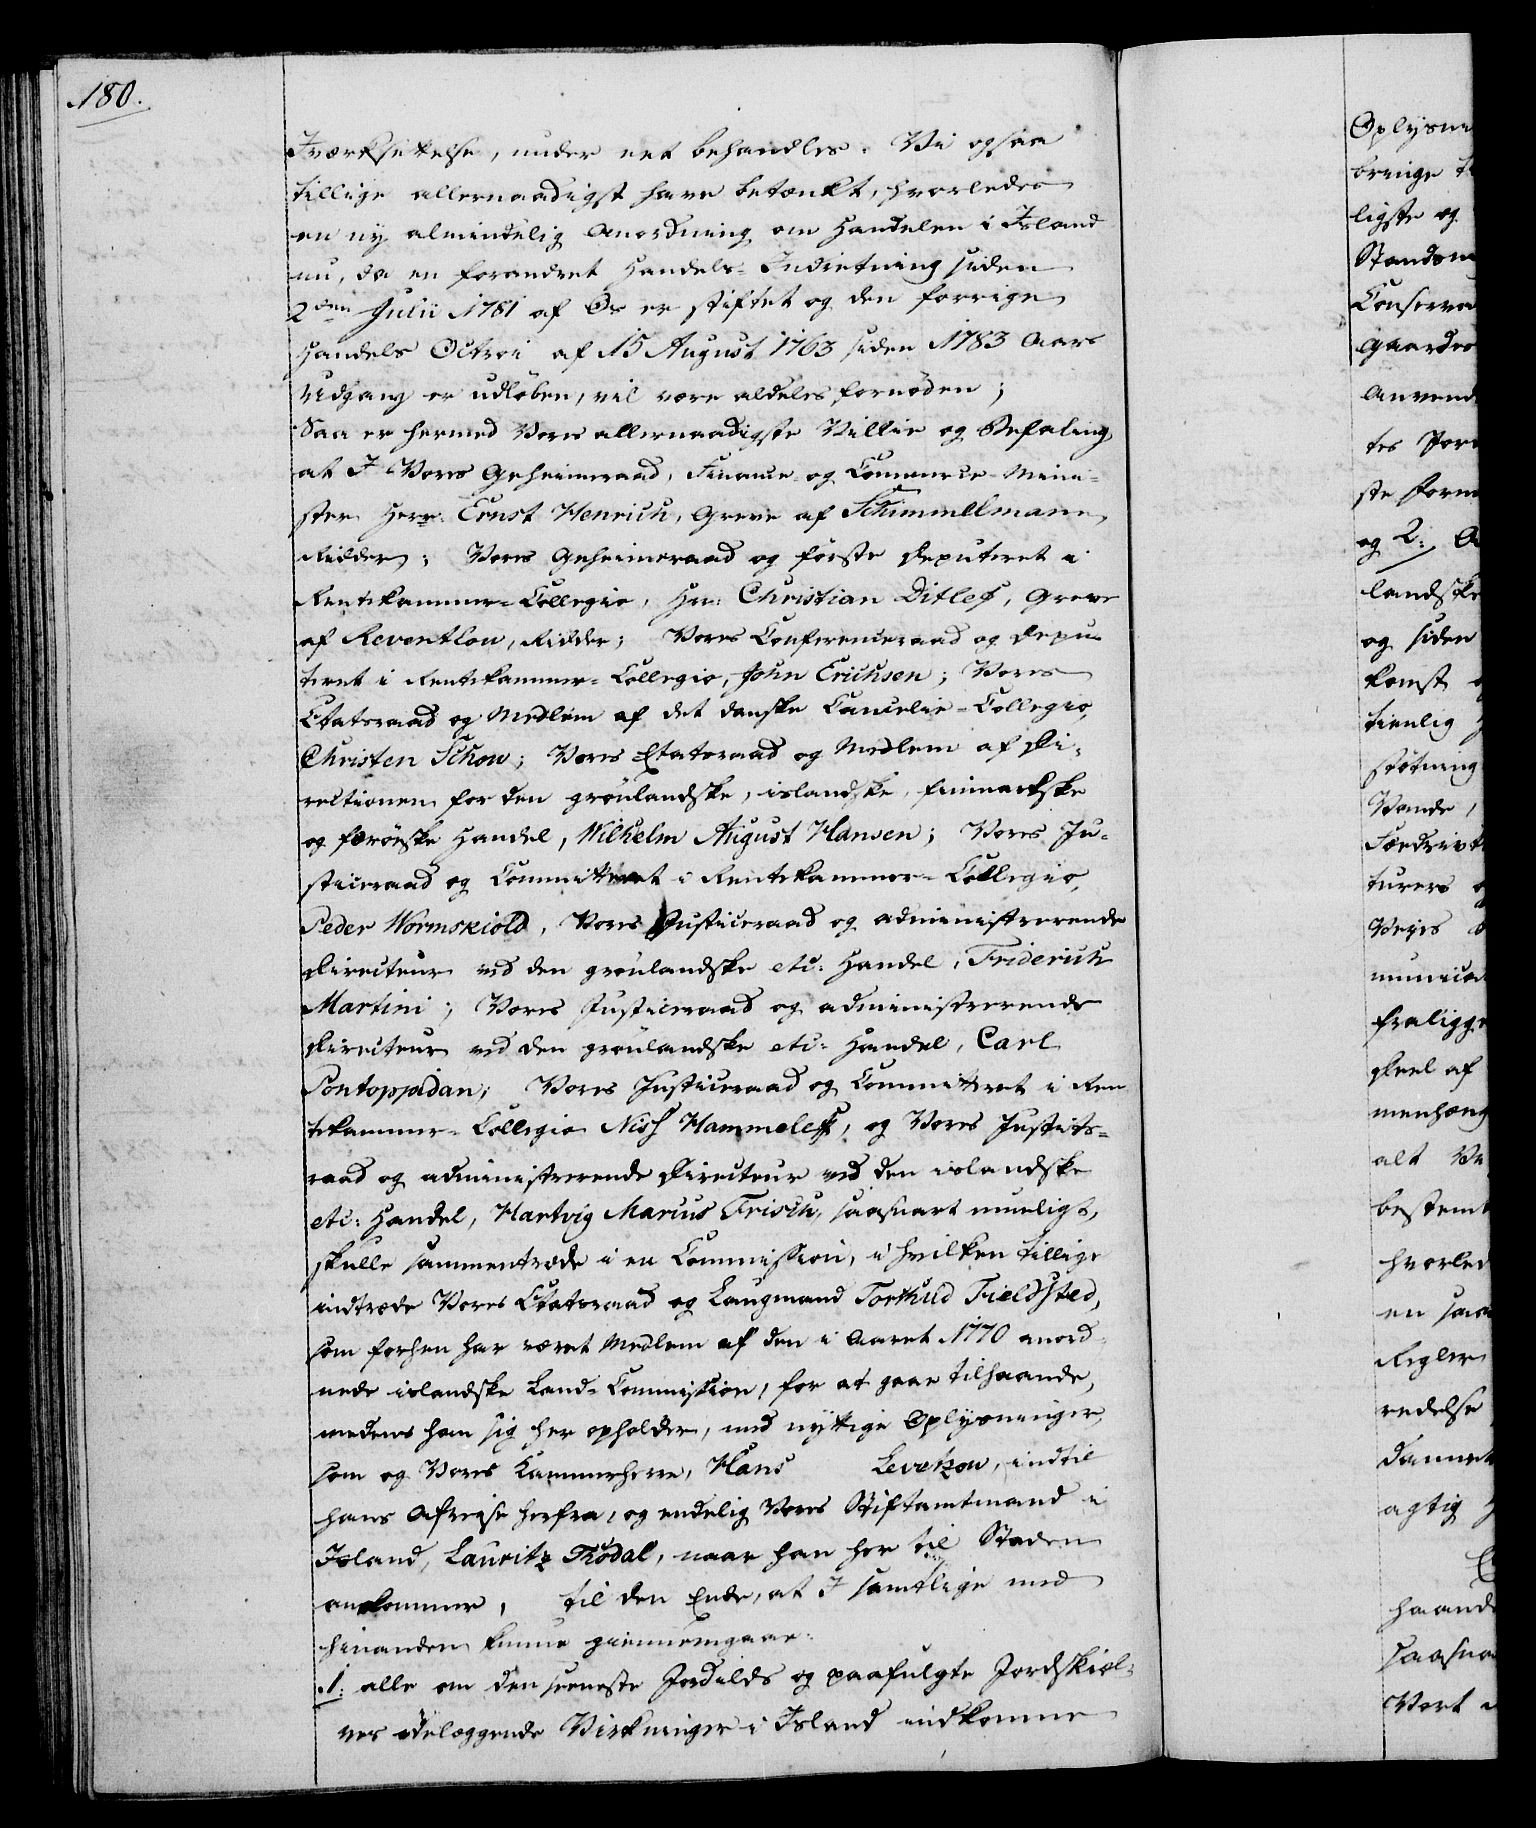 180.
Iværksættelse, under eet behandles. Vi ogsaa
tillige allernaadigst have betænkt, hvorledes
en ny almindelig Anordning om Handelen i Island
nu, da en forandret Handels-Indretning siden
2den Julii 1781 af Os er stiftet og den forrige
Handels Octroi af 15 August 1763 siden 1783 Aars
Udgang er udløben, vil være aldeles fornøden;
Saa er hermed Vores allernaadigste Villie og Befaling,
at I Vores Geheimeraad, Finance- og Commerce-Mini-
ster Herr: Ernst Henrich, Greve af Schimmelmann,
Ridder; Vores Geheimeraad og første Deputeret i
Rentekammer-Collegio, Hr: Christian Ditlef, Greve
af Reventlow, Ridder; Vores Conferenceraad og Depu-
teret i Rentekammer-Collegio, John Erichsen; Vores
Etatsraad og Medlem af det danske Cancelie-Collegio,
Christen Schow; Vores Etatsraad og Medlem af Di-
rectionen for den grønlandske, islandske, finmarkske
og færøiske Handel, Wilhelm August Hansen; Vores Ju-
sticeraad og Committeret i Rentekammer-Collegio,
Peder Wormskiold, Vores Justiceraad og administrerende
Directeur ved den grønlandske etc: Handel, Friderich
Martini; Vores Justiceraad og administrerende
Directeur ved den grønlandske etc: Handel, Carl
Pontoppidan; Vores Justiceraad og Committeret i Ren
tekammer-Collegio Niss Hammeleff, og Vores Justits-
raad og administrerende Directeur ved den islandske
etc: Handel, Hartvig Marcus Frisch, saasnart mueligt,
skulle sammentræde i en Commission, i hvilken tillige
indtræde Vores Etatsraad og Laugmand Torkild Fieldsted,
som forhen har været Medlem af den i Aaret 1770 anord-
nede islandske Land-Commission, for at gaae tilhaande,
medens han sig her opholder, med nyttige Oplysninger,
som og Vores Kammerherre, Hans Levetzow, indtil
hans Afreise herfra, og endelig Vores Stiftamtmand i
Island, Lauritz Thodal, naar han her til Staden
ankommer, til den Ende, at I samtlige med
hinanden kunne giennemgaae:
1: alle om den seeneste Jordilds og paafulgte Jordskiel-
ves ødelæggende Virkninger i Island indkomne
Oplysni
bringe
ligste og
Conserva
Gaardes
Anvend
og 2:
landske
og siden
komst
tienlig
støtning
turers
Veyes
fraligge
Deel af
menhæng
alt
bestemt
hvorled
en saa
Regler
redelse
agtig
haand
saasna
Vort